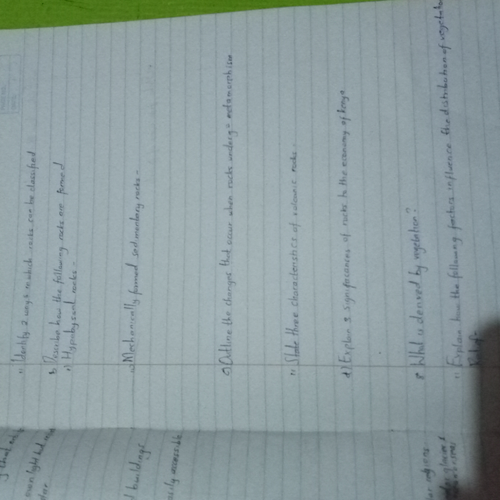 i) Identify 2 ways in which rocks can be classified
b) Describe how the following rocks are formed
i) Hypabyssal rocks -
ii) Mechanically formed sedimentary rocks -
c) Outline the changes that occur when rocks undergo metamorphism
ii) State three characteristics of volcanic rocks
d) Explain significances of rocks to the economy of Kenya
What is derived by vegetation?
ii) Explain how the following factors influence the distribution of vegetation
buildings
easily accessible